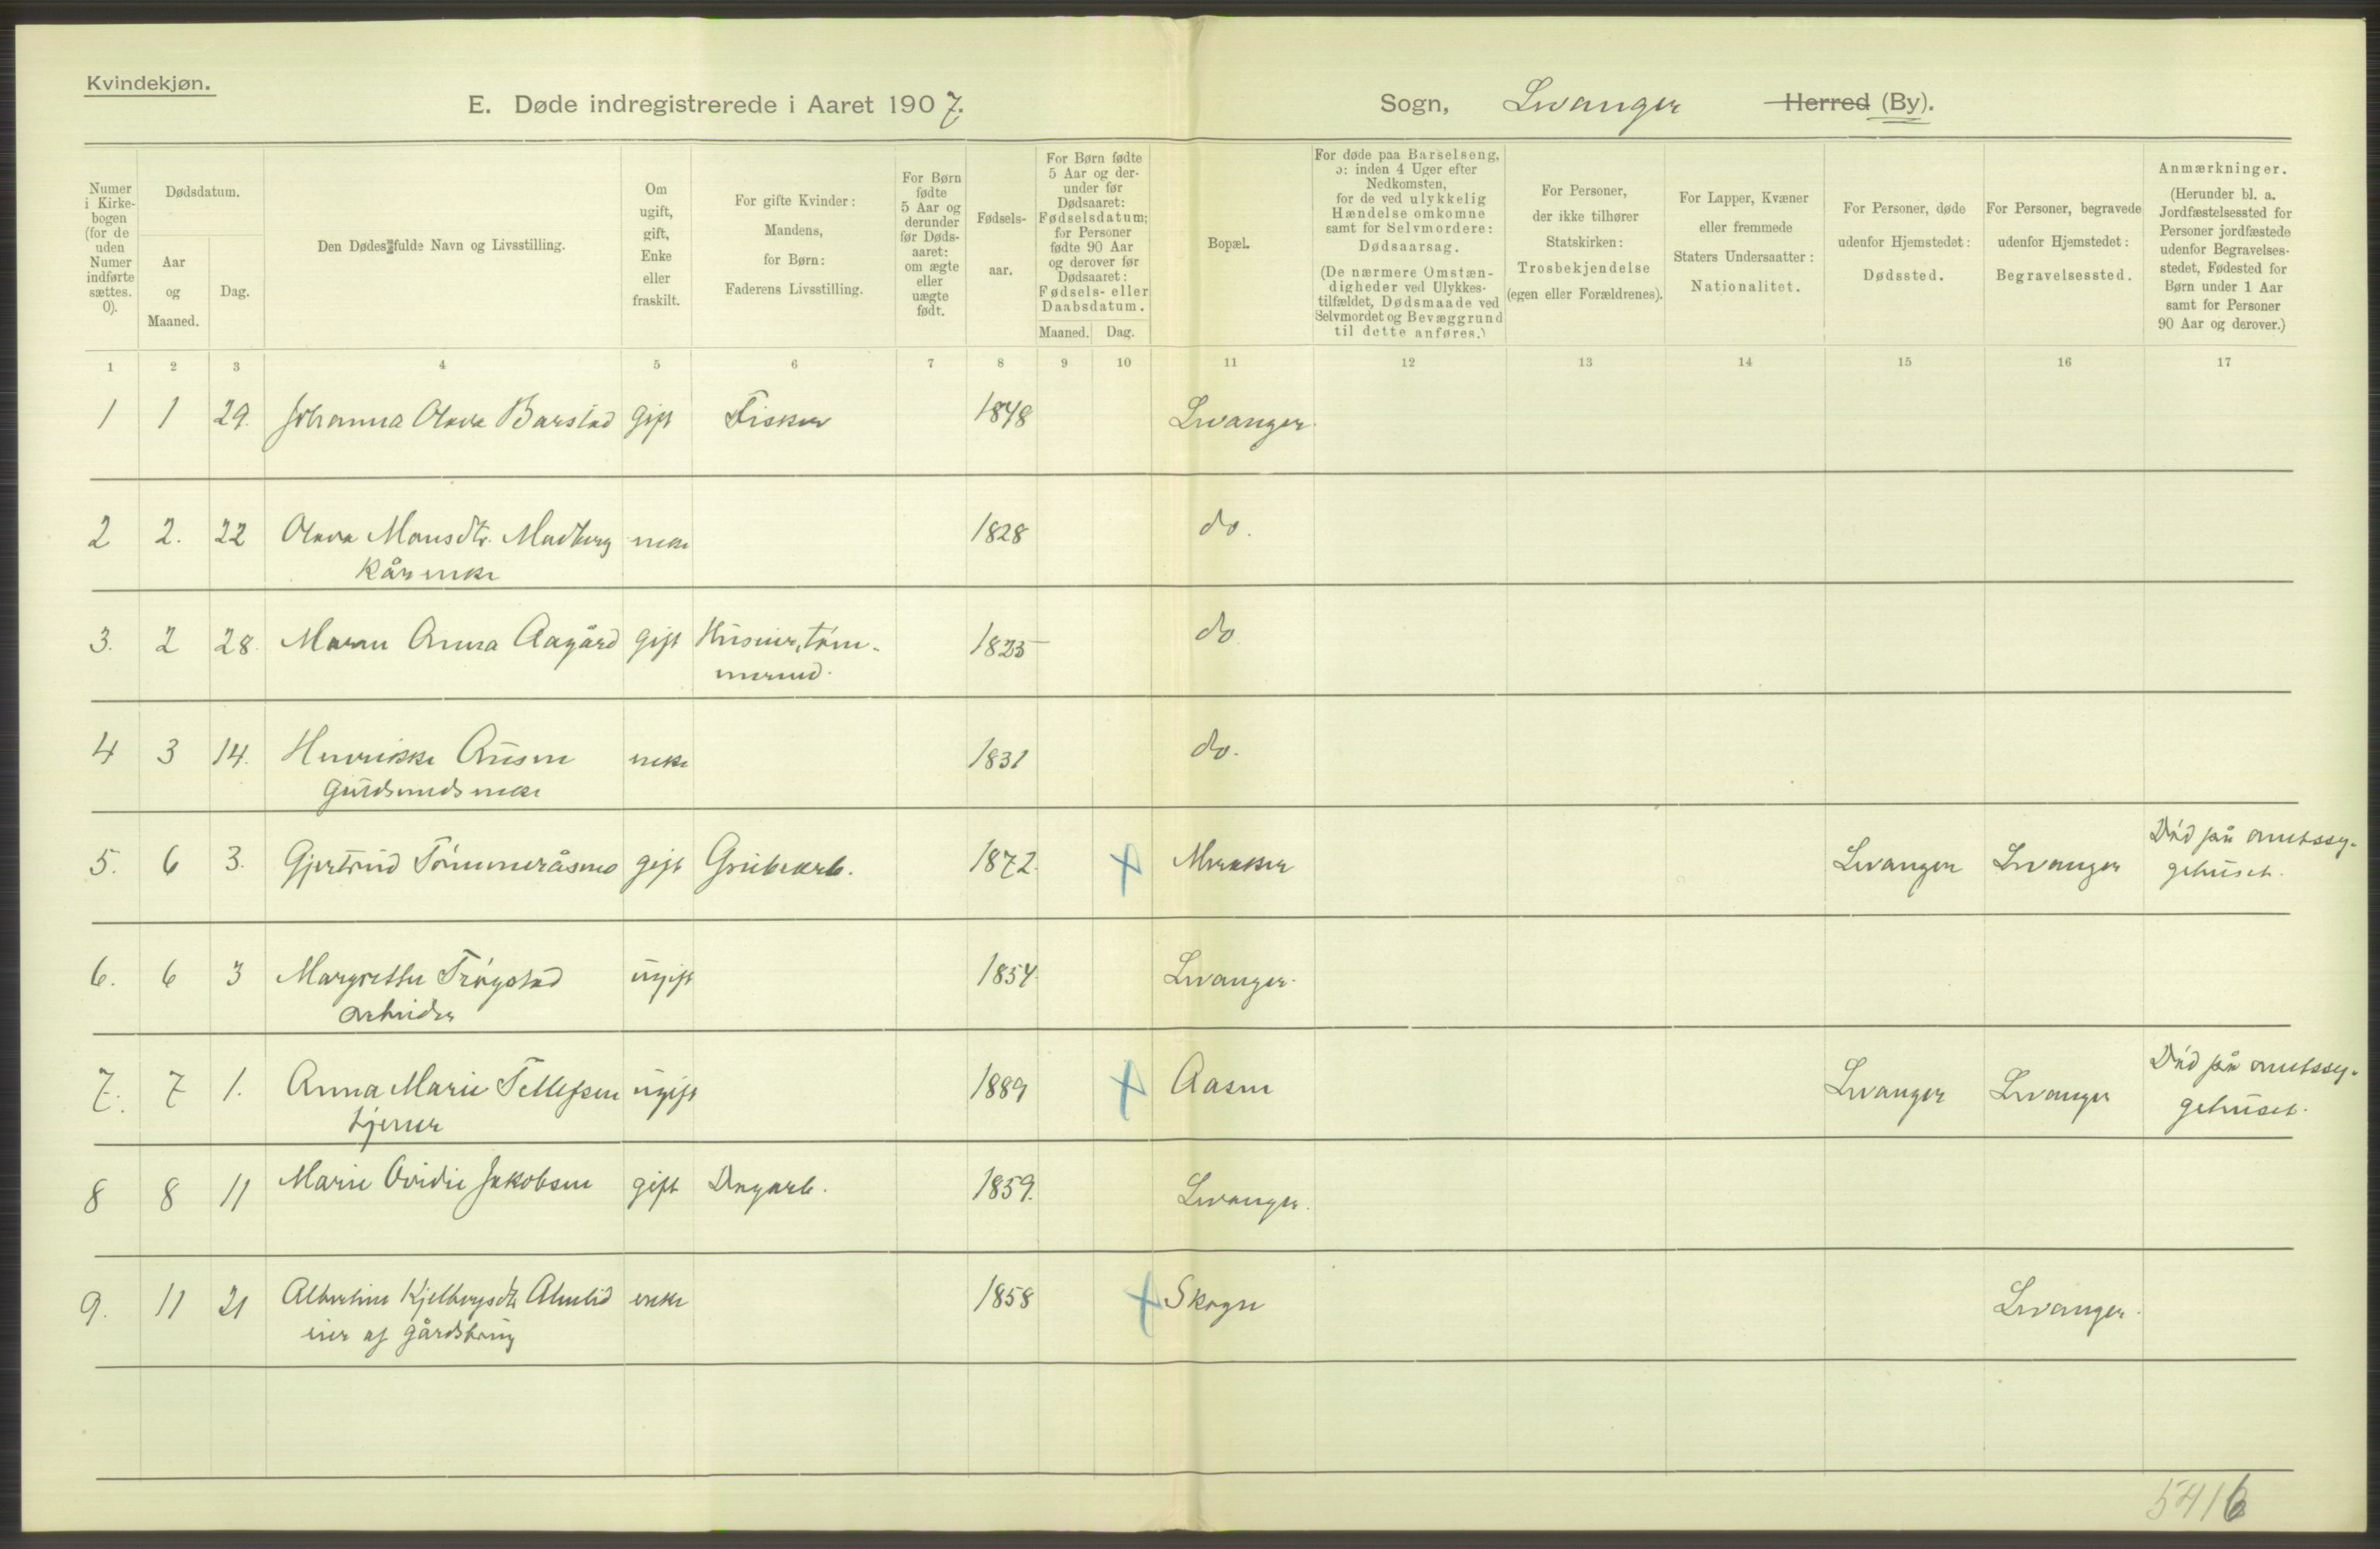 Kvindekjøn.
E. Døde indregistrerede i Aaret 1907. Sogn, Levanger Herred (By).
Numer i Kirkebogen (for de uden Numer indførte sættes. 0).
Dødsdatum.
Aar og Maaned.
Dag.
Den Dødes fulde Navn og Livsstilling.
Om ugift, gift, Enke eller fraskilt.
For gifte Kvinder: Mandens, for Børn: Faderens Livsstilling.
For Børn fødte 5 Aar og derunder før Dødsaaret: om ægte eller uægte født.
Fødselsaar.
For Børn fødte 5 Aar og derunder før Dødsaaret: Fødselsdatum; for Personer fødte 90 Aar og derover før Dødsaaret: Fødsels- eller Daabsdatum.
Maaned. Dag.
Bopæl.
For døde paa Barselseng, ɔ: inden 4 Uger efter Nedkomsten, for de ved ulykkelig Hændelse omkomne samt for Selvmordere: Dødsaarsag.
(De nærmere Omstændigheder ved Ulykkestilfældet, Dødsmaade ved Selvmordet og Bevæggrund til dette anføres.)
For Personer, der ikke tilhører Statskirken: Trosbekjendelse (egen eller Forældrenes).
For Lapper, Kvæner eller fremmede Staters Undersaatter: Nationalitet.
For Personer, døde udenfor Hjemstedet: Dødssted.
For Personer, begravede udenfor Hjemstedet: Begravelsessted.
Anmærkninger.
(Herunder bl. a. Jordfæstelsessted for Personer jordfæstede udenfor Begravelsesstedet, Fødested for Børn under 1 Aar samt for Personer 90 Aar og derover.)
1 2 3 4 5 6 7 8 9 10 11 12 13 14 15 16 17
1 1 29. Johanna Olava Barstad gift Fisker 1848 Levanger.
2 2. 22 Olava Monsdtr. enke 1828 do.
Kårenke
3. 2 28. Maren Anna Aagård gift Huseier, tøm- 1825 do
mermd.
4 3 14. Henrikke enke 1831 do.
Guldsmedsenke
5. 6 3. Gjertrud Tømmeråsmo gift Grubearb. 1872. Meraker Levanger Levanger Død på amtssy-
gehuset.
6. 6 3 Margrethe Trøgstad ugift 1854. Levanger.
Arbeider
7. 7 1. Anna Marie Tellefsen ugift 1889 Aasen Levanger Levanger Død på amtssy-
tjener gehuset.
8 8 11 Marie Ovidie Jakobsen gift Dagarb. 1859. Levanger.
9. 11 21 Albertine Kjelbergsdtr. enke 1858 Skogn Levanger.
eier af gårdsbrug
5416